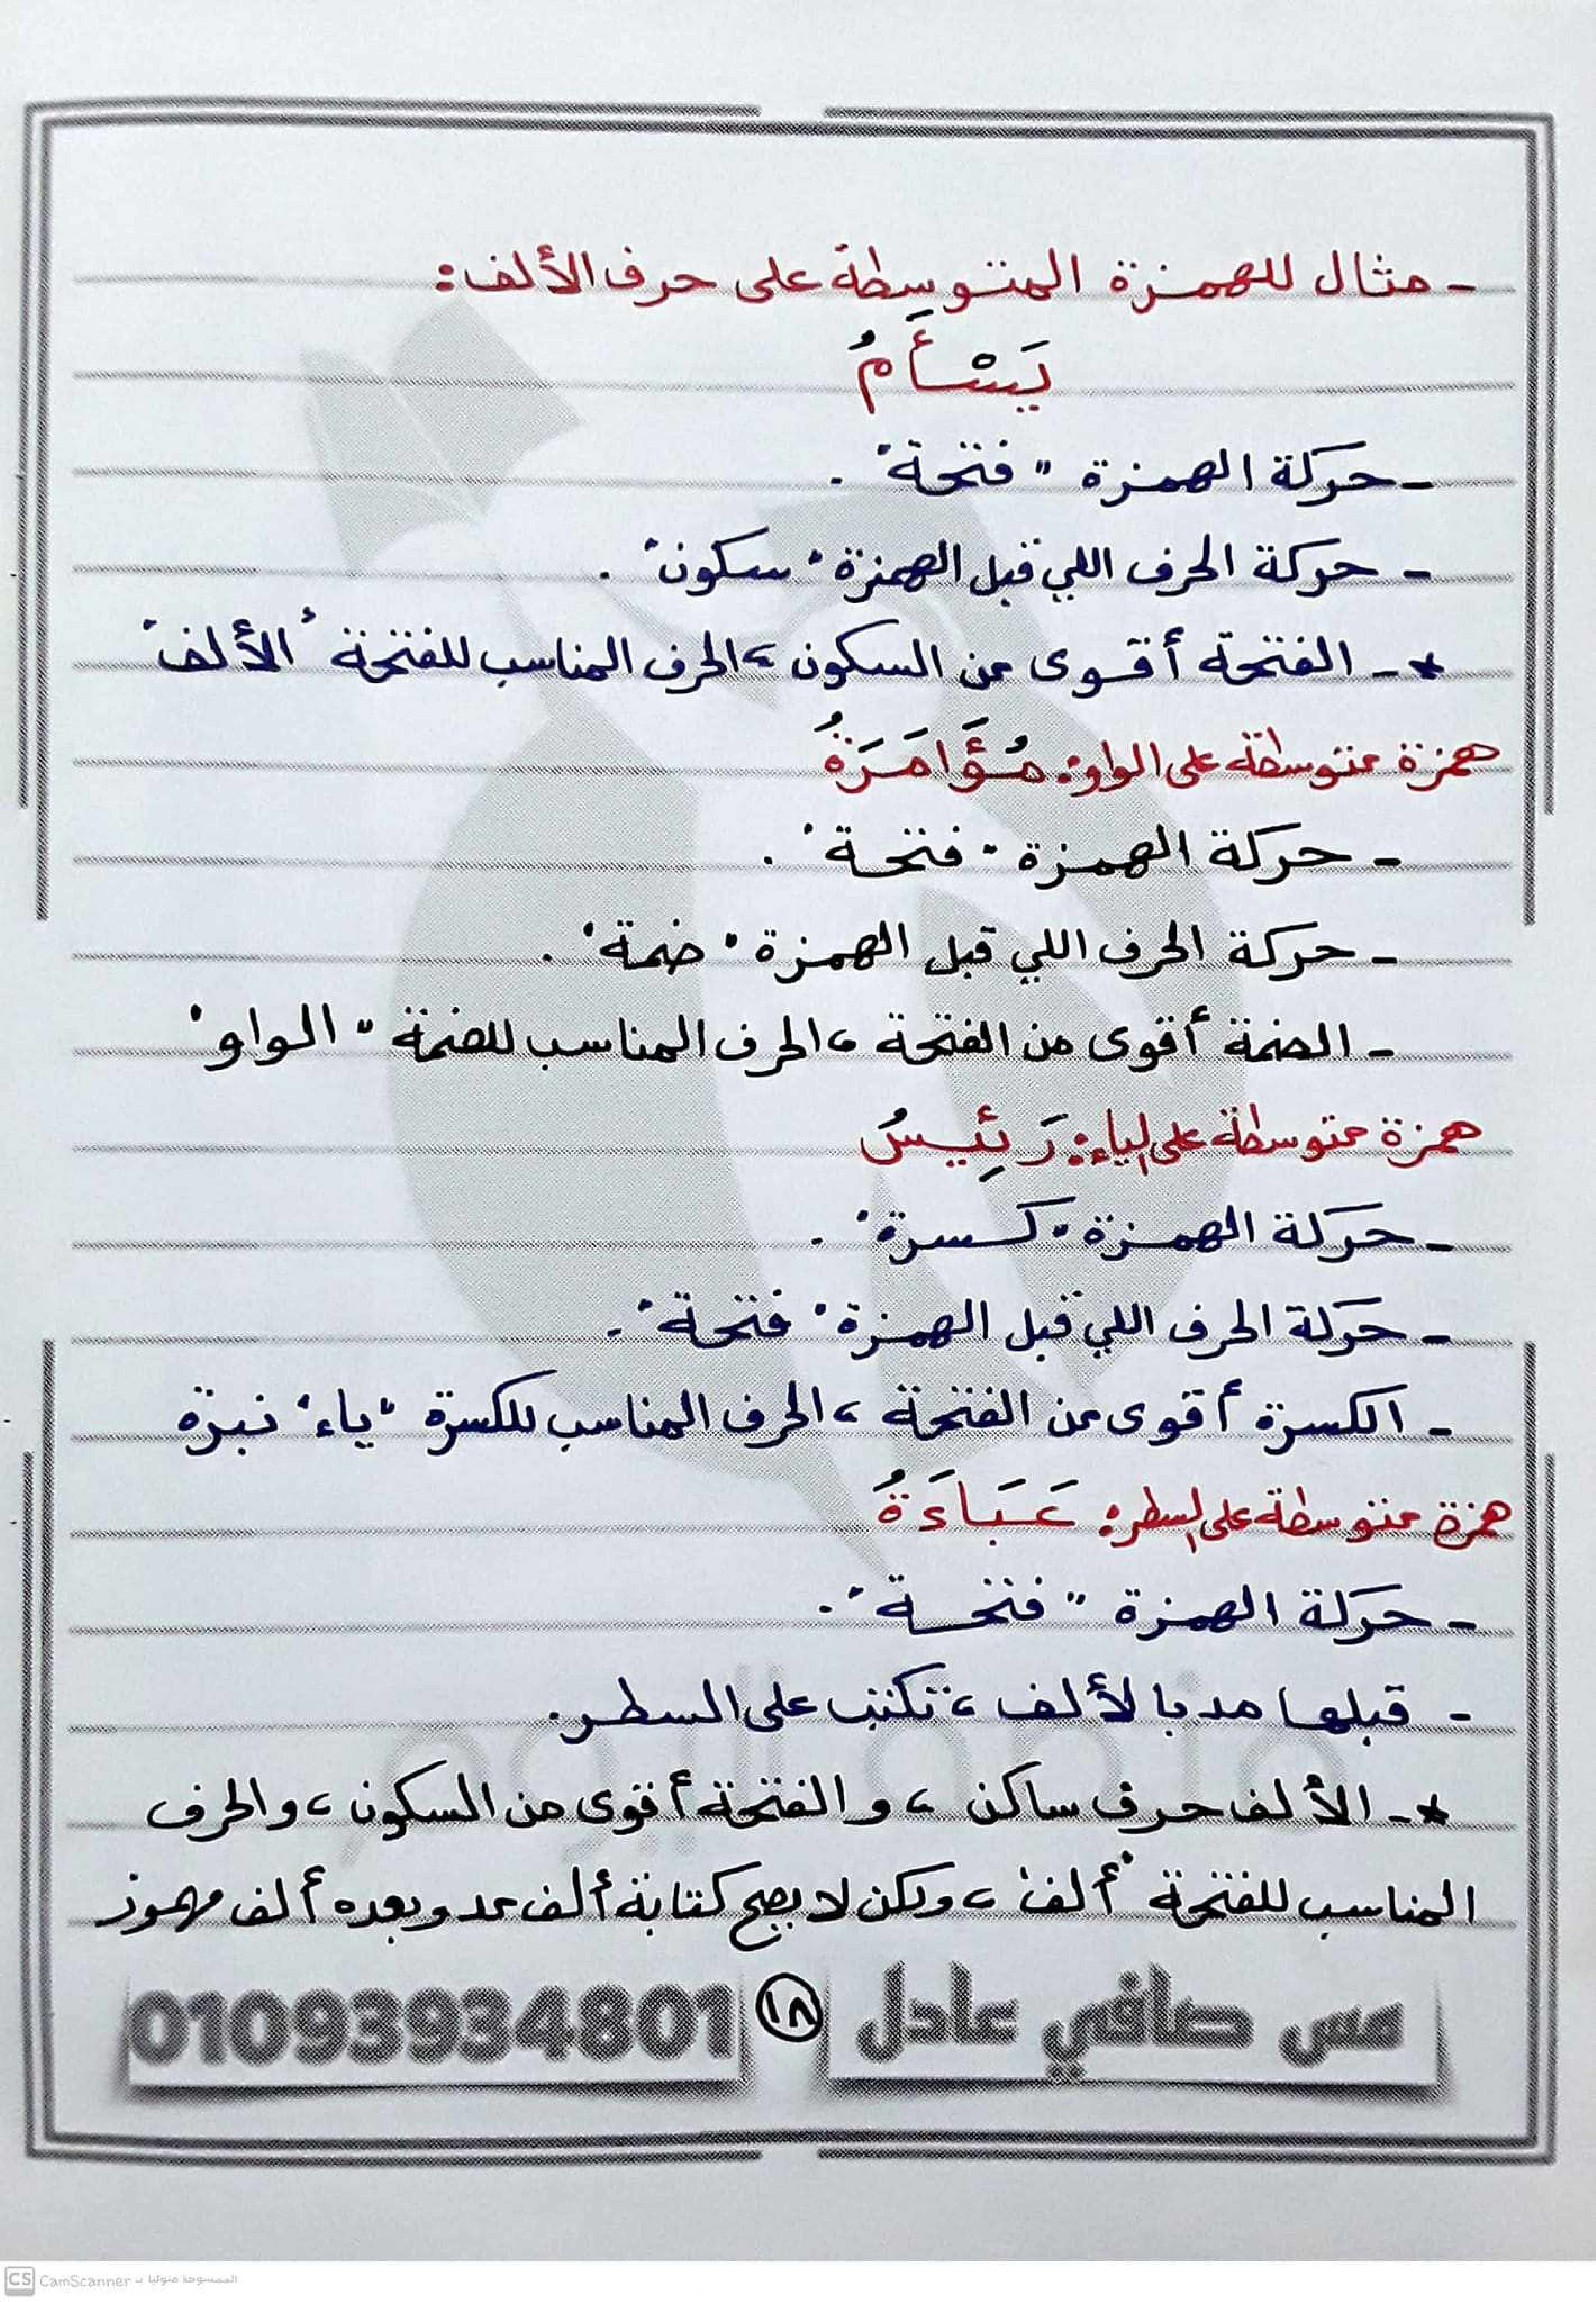 - مثال للهمزة المتوسطة على حرف الألف:
يَسْأَمُ
- حركة الهمزة "فتحة".
- حركة الحرف اللي قبل الهمزة "سكون".
*- الفتحة أقوى من السكون، الحرف المناسب للفتحة "الألف"
همزة متوسطة على الواو: مُؤَامَرَةُ
- حركة الهمزة "فتحة".
- حركة الحرف اللي قبل الهمزة "ضمة".
- الضمة أقوى من الفتحة، الحرف المناسب للضمة "الواو"
همزة متوسطة على الياء: رَئِيسُ
- حركة الهمزة "كسرة".
- حركة الحرف اللي قبل الهمزة "فتحة".
- الكسرة أقوى من الفتحة، الحرف المناسب للكسرة "ياء" نبرة
همزة متوسطة على السطر: عَبَاءَةُ
- حركة الهمزة "فتحة".
- قبلها مد بالألف، تكتب على السطر.
*- الألف حرف ساكن، والفتحة أقوى من السكون، والحرف
المناسب للفتحة "ألف"، ولكن لا يصح كتابة ألف مد وبعده ألف مهموز
مس صافي عادل ١٨ 01093934801
CS CamScanner الممسوحة ضوئيا بـ